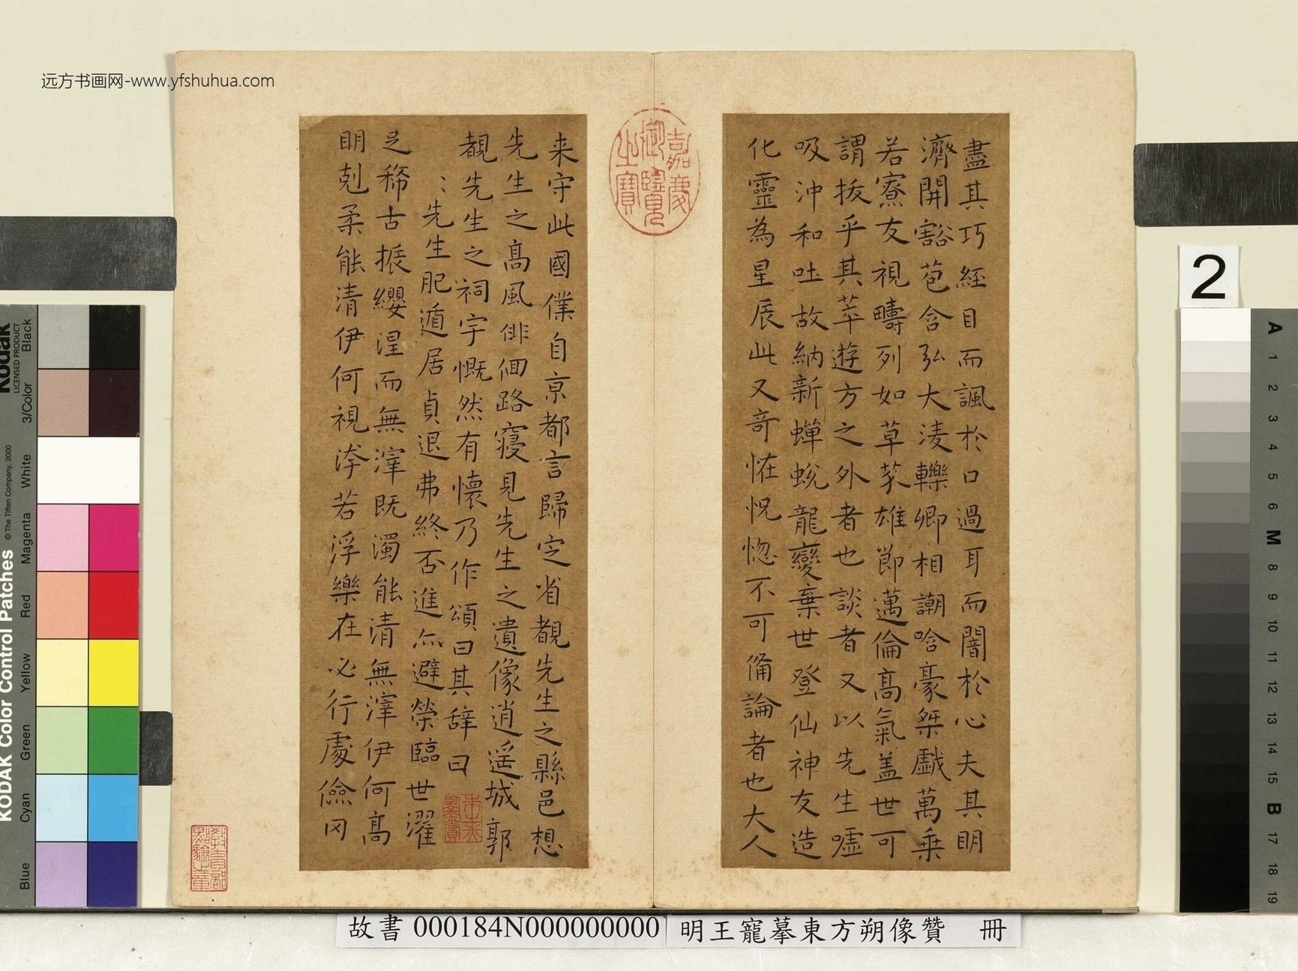 远方书画网-www.yfshuhua.com
嘉慶
御覽
之寶
盡其巧經目而諷於口過耳而闇於心夫其明
濟開豁苞含弘大淩轢卿相謿哈豪桀戲萬乘
若寮友視疇列如草芥雄節邁倫高氣盖世可
謂拔乎其萃遊方之外者也談者又以先生噓
吸沖和吐故納新蟬蛻龍變棄世登仙神友造
化靈為星辰此又奇恠怳惚不可俻論者也大人
来守此國僕自京都言歸定省覩先生之縣邑想
先生之高風俳佪路寢見先生之遺像逍遥城郭
覩先生之祠宇慨然有懷乃作頌曰其辞曰
先生肥遁居貞退弗終否進亦避榮臨世濯
足稀古振纓涅而無滓既濁能清無滓伊何高
明剋柔能清伊何視洿若浮樂在必行處儉冈
2
KODAK Color Control Patches
© The Tiffen Company, 2000
Kodak
LICENSED PRODUCT
Black
3/Color
White
Magenta
Red
Yellow
Green
Cyan
Blue
A
1
2
3
4
5
6
M
8
9
10
11
12
13
14
15
B
17
18
19
故書 000184N000000000
明王寵摹東方朔像贊 冊